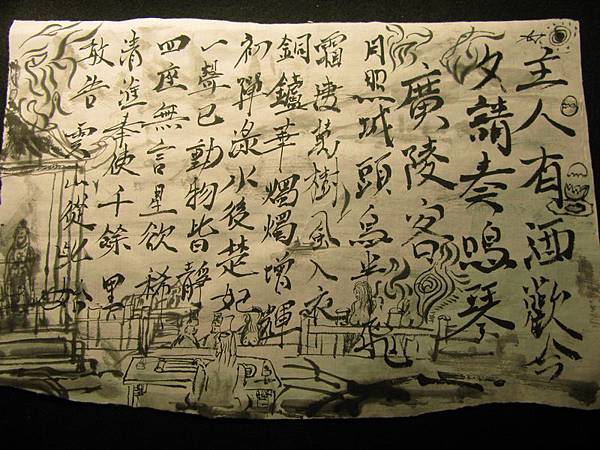 主人有酒歡今
夕請奏鳴琴
廣陵客
月照城頭烏半飛
霜淒萬樹風入衣
銅鑪華燭燭增輝
初彈淥水後楚妃
一聲已動物皆靜
四座無言星欲稀
清淮奉使千餘里
敢告雲山從此始